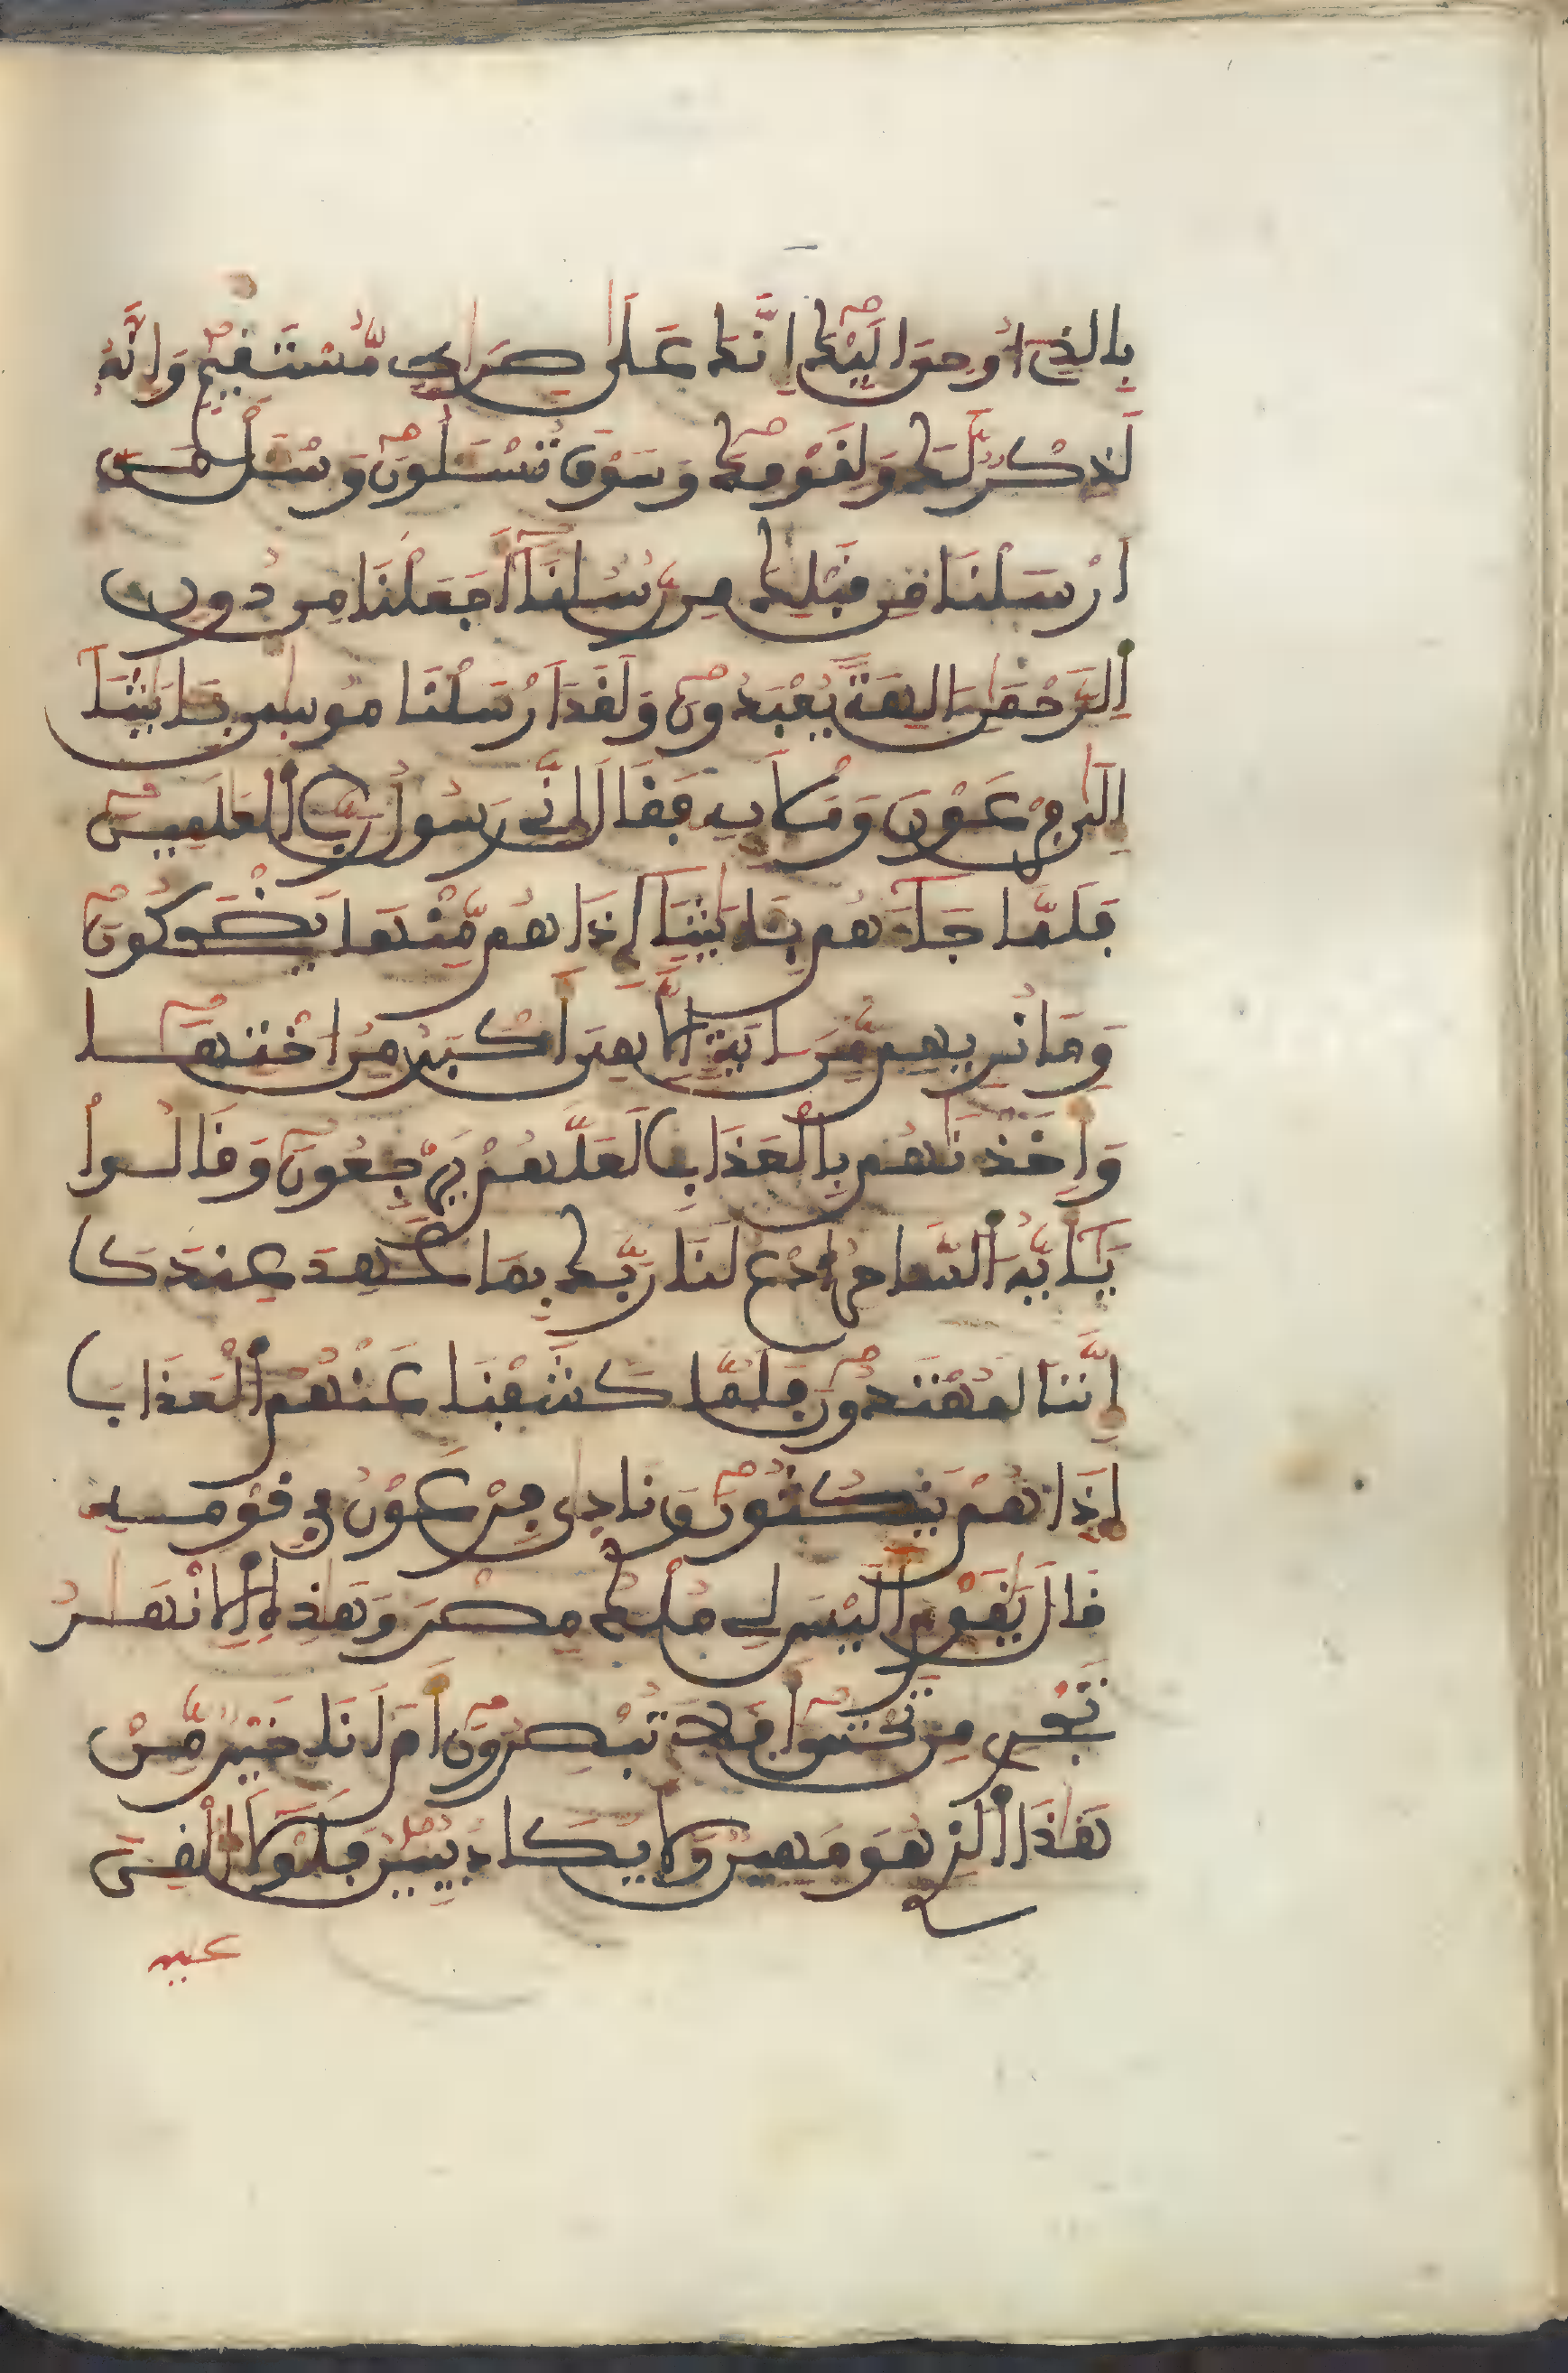 بِالذِےٓ أُوحِىَ إِلَيْكَ إِنَّكَ عَلَىٰ صِرَٰطٖ مُّسْتَقِيمٖ وَإِنَّهُۥ
لَذِكْرٞ لَّكَ وَلِقَوْمِكَ وَسَوْفَ تُسْـَٔلُونَ وَسْـَٔلْ مَنَ
اَرْسَلْنَا مِن قَبْلِكَ مِن رُّسُلِنَآ أَجَعَلْنَا مِن دُونِ
اِ۬لرَّحْمَٰنِ ءَالِهَةٗ يُعْبَدُونَ وَلَقَدَ اَرْسَلْنَا مُوسَىٰ بِـَٔايَٰتِنَآ
إِلَىٰ فِرْعَوْنَ وَمَلَإِيْهِۦ فَقَالَ إِنِّے رَسُولُ رَبِّ اِ۬لْعَٰلَمِينَ
فَلَمَّا جَآءَهُم بِـَٔايَٰتِنَآ إِذَا هُم مِّنْهَا يَضْحَكُونَ
وَمَا نُرِيهِم مِّنَ ءَايَةٍ اِلَّا هِىَ أَكْبَرُ مِنُ ا۟خْتِهَا
وَأَخَذْنَٰهُم بِالْعَذَابِ لَعَلَّهُمْ يَرْجِعُونَ وَقَالُوا۟
يَٰٓأَيُّهَ اَ۬لسَّاحِرُ ا۟دْعُ لَنَا رَبَّكَ بِمَا عَهِدَ عِندَكَ
إِنَّنَا لَمُهْتَدُونَ فَلَمَّا كَشَفْنَا عَنْهُمُ اُ۬لْعَذَابَ
إِذَا هُمْ يَنكُثُونَ وَنَادَىٰ فِرْعَوْنُ فِے قَوْمِهِۦ
قَالَ يَٰقَوْمِ أَلَيْسَ لِے مُلْكُ مِصْرَ وَهَٰذِهِ اِ۬لَانْهَٰرُ
تَجْرِے مِن تَحْتِىَ أَفَلَا تُبْصِرُونَ أَمَ اَنَا خَيْرٞ مِّنْ
هَٰذَا اَ۬لذِے هُوَ مَهِينٞ وَلَا يَكَادُ يُبِينُ فَلَوْلَآ أُلْقِىَ
عليه